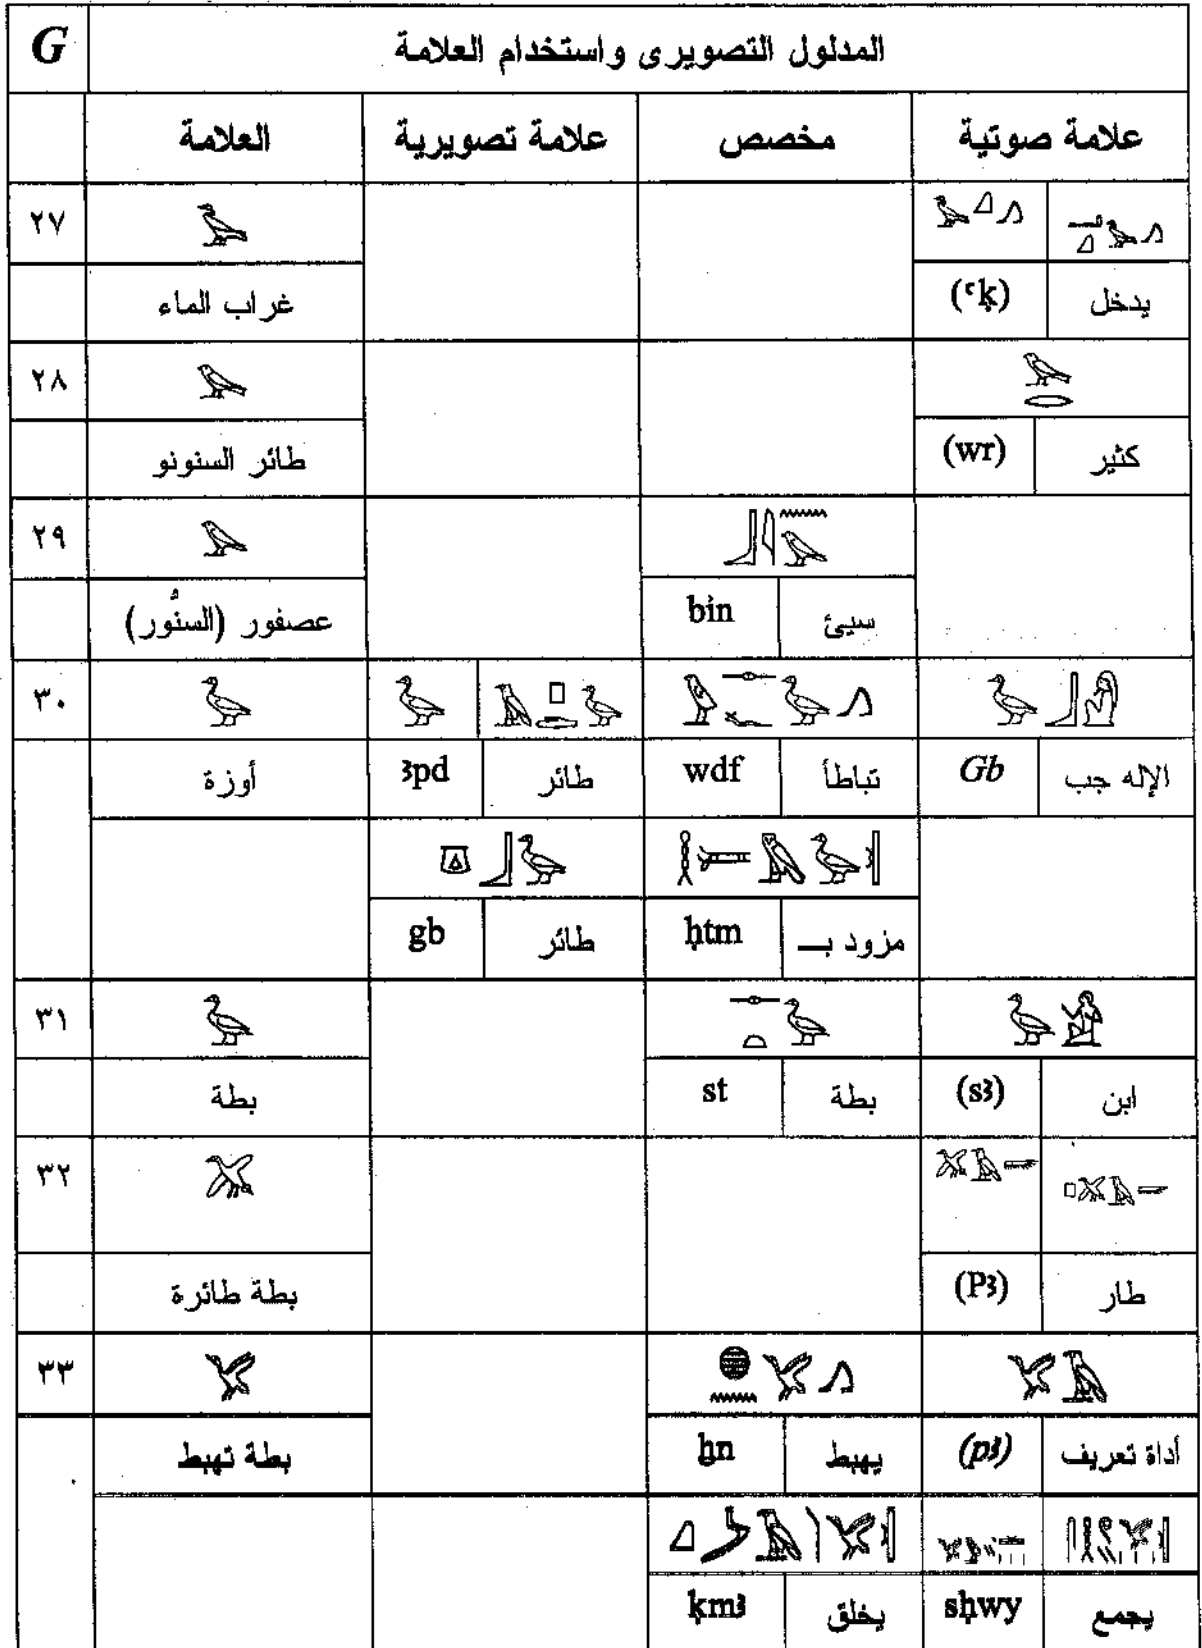 G المدلول التصويرى واستخدام العلامة
العلامة علامة تصويرية مخصص علامة صوتية
٢٧
غراب الماء (ꜥḳ) يدخل
٢٨
طائر السنونو (wr) كثير
٢٩
عصفور (السنُّور) bỉn سيئ
٣٠
أوزة ꜣpd طائر wdf تباطأ Gb الإله جب
gb طائر ḥtm مزود بـ
٣١
بطة st بطة (sꜣ) ابن
٣٢
بطة طائرة (Pꜣ) طار
٣٣
بطة تهبط ẖn يهبط (pꜣ) أداة تعريف
ḳmꜣ يخلق sḥwy يجمع